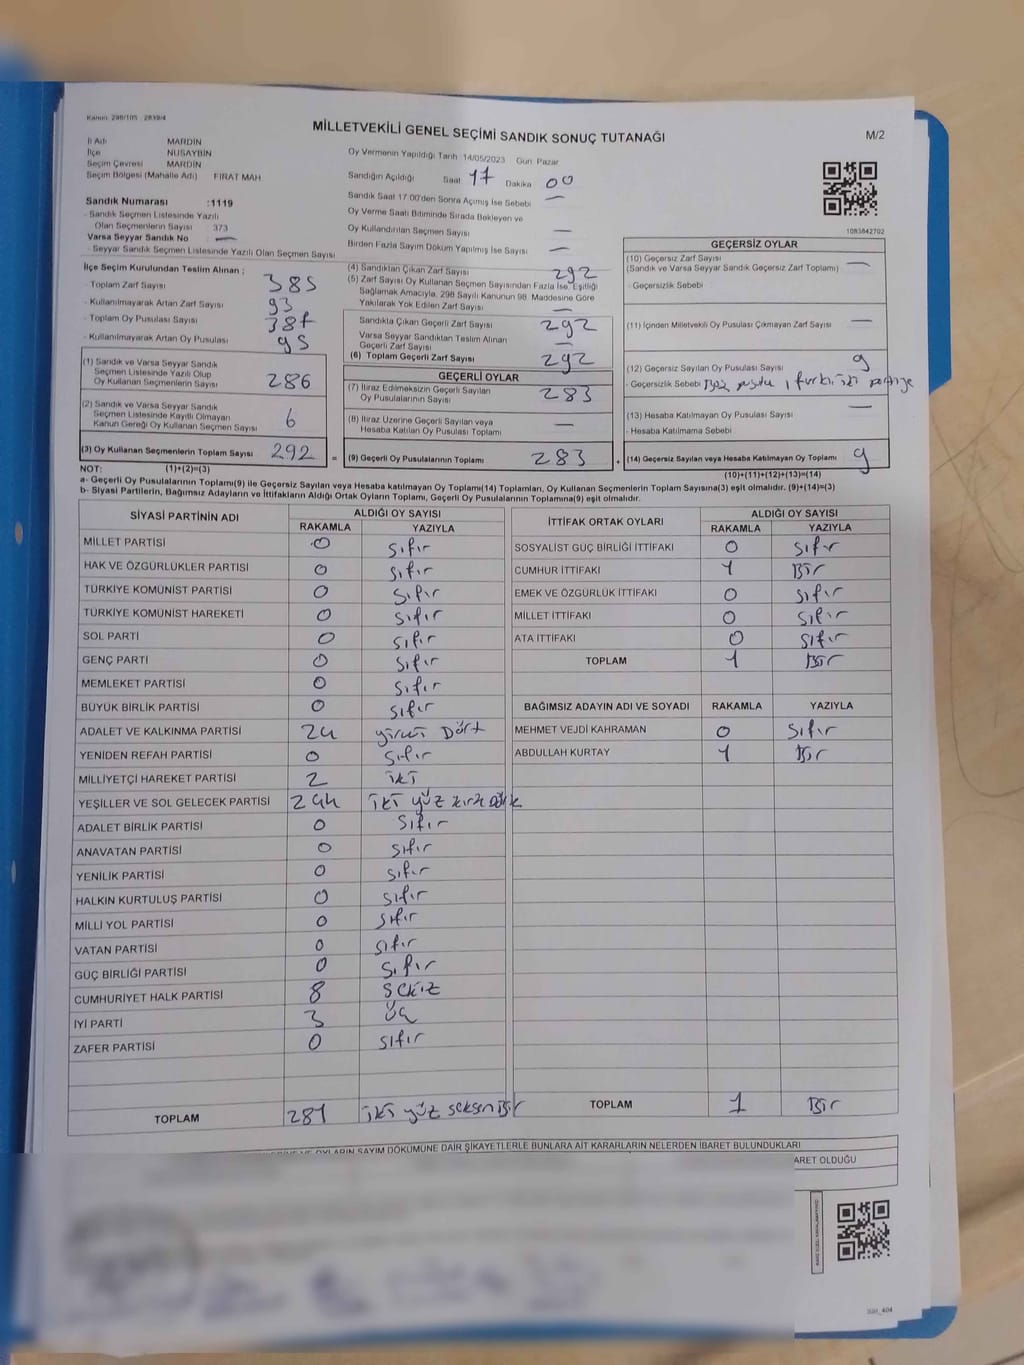 Kanun: 298/105 - 2839/4
MİLLETVEKİLİ GENEL SEÇİMİ SANDIK SONUÇ TUTANAĞI
M/2
İl Adı MARDİN
İlçe NUSAYBİN
Seçim Çevresi MARDİN
Seçim Bölgesi (Mahalle Adı) FIRAT MAH
Oy Vermenin Yapıldığı Tarih 14/05/2023 Gün Pazar
Sandığın Açıldığı Saat 17 Dakika 00
Sandık Saat 17.00'den Sonra Açımış İse Sebebi —
Oy Verme Saati Bitiminde Sırada Bekleyen ve
Oy Kullandırılan Seçmen Sayısı —
Birden Fazla Sayım Döküm Yapılmış İse Sayısı —
Sandık Numarası :1119
- Sandık Seçmen Listesinde Yazılı
Olan Seçmenlerin Sayısı 373
Varsa Seyyar Sandık No —
- Seyyar Sandık Seçmen Listesinde Yazılı Olan Seçmen Sayısı
1083842702
İlçe Seçim Kurulundan Teslim Alınan ;
- Toplam Zarf Sayısı 385
- Kullanılmayarak Artan Zarf Sayısı 93
- Toplam Oy Pusulası Sayısı 387
- Kullanılmayarak Artan Oy Pusulası 95
(1) Sandık ve Varsa Seyyar Sandık
Seçmen Listesinde Yazılı Olup
Oy Kullanan Seçmenlerin Sayısı 286
(2) Sandık ve Varsa Seyyar Sandık
Seçmen Listesinde Kayıtlı Olmayan
Kanun Gereği Oy Kullanan Seçmen Sayısı 6
(3) Oy Kullanan Seçmenlerin Toplam Sayısı 292
(4) Sandıktan Çıkan Zarf Sayısı 292
(5) Zarf Sayısı Oy Kullanan Seçmen Sayısından Fazla İse, Eşitliği
Sağlamak Amacıyla, 298 Sayılı Kanunun 98. Maddesine Göre
Yakılarak Yok Edilen Zarf Sayısı —
Sandıkta Çıkan Geçerli Zarf Sayısı 292
Varsa Seyyar Sandıktan Teslim Alınan
Geçerli Zarf Sayısı —
(6) Toplam Geçerli Zarf Sayısı 292
GEÇERLİ OYLAR
(7) İtiraz Edilmeksizin Geçerli Sayılan
Oy Pusulalarının Sayısı 283
(8) İtiraz Üzerine Geçerli Sayılan veya
Hesaba Katılan Oy Pusulası Toplamı —
= (9) Geçerli Oy Pusulalarının Toplamı 283 +
GEÇERSİZ OYLAR
(10) Geçersiz Zarf Sayısı —
(Sandık ve Varsa Seyyar Sandık Geçersiz Zarf Toplamı)
- Geçersizlik Sebebi
(11) İçinden Milletvekili Oy Pusulası Çıkmayan Zarf Sayısı —
(12) Geçersiz Sayılan Oy Pusulası Sayısı 9
- Geçersizlik Sebebi
(13) Hesaba Katılmayan Oy Pusulası Sayısı —
- Hesaba Katılmama Sebebi
(14) Geçersiz Sayılan veya Hesaba Katılmayan Oy Toplamı 9
NOT: (1)+(2)=(3)
(10)+(11)+(12)+(13)=(14)
a- Geçerli Oy Pusulalarının Toplamı(9) ile Geçersiz Sayılan veya Hesaba katılmayan Oy Toplamı(14) Toplamları, Oy Kullanan Seçmenlerin Toplam Sayısına(3) eşit olmalıdır. (9)+(14)=(3)
b- Siyasi Partilerin, Bağımsız Adayların ve İttifakların Aldığı Ortak Oyların Toplamı, Geçerli Oy Pusulalarının Toplamına(9) eşit olmalıdır.
SİYASİ PARTİNİN ADI ALDIĞI OY SAYISI
RAKAMLA YAZIYLA
MİLLET PARTİSİ 0 Sıfır
HAK VE ÖZGÜRLÜKLER PARTİSİ 0 Sıfır
TÜRKİYE KOMÜNİST PARTİSİ 0 Sıfır
TÜRKİYE KOMÜNİST HAREKETİ 0 Sıfır
SOL PARTİ 0 Sıfır
GENÇ PARTİ 0 Sıfır
MEMLEKET PARTİSİ 0 Sıfır
BÜYÜK BİRLİK PARTİSİ 0 Sıfır
ADALET VE KALKINMA PARTİSİ 24 yirmi Dört
YENİDEN REFAH PARTİSİ 0 Sıfır
MİLLİYETÇİ HAREKET PARTİSİ 2 iki
YEŞİLLER VE SOL GELECEK PARTİSİ 244 iki yüz kırk Dört
ADALET BİRLİK PARTİSİ 0 Sıfır
ANAVATAN PARTİSİ 0 Sıfır
YENİLİK PARTİSİ 0 Sıfır
HALKIN KURTULUŞ PARTİSİ 0 Sıfır
MİLLİ YOL PARTİSİ 0 Sıfır
VATAN PARTİSİ 0 Sıfır
GÜÇ BİRLİĞİ PARTİSİ 0 Sıfır
CUMHURİYET HALK PARTİSİ 8 Sekiz
İYİ PARTİ 3 Üç
ZAFER PARTİSİ 0 Sıfır
TOPLAM 281 iki yüz seksen Bir
İTTİFAK ORTAK OYLARI ALDIĞI OY SAYISI
RAKAMLA YAZIYLA
SOSYALİST GÜÇ BİRLİĞİ İTTİFAKI 0 Sıfır
CUMHUR İTTİFAKI 1 Bir
EMEK VE ÖZGÜRLÜK İTTİFAKI 0 Sıfır
MİLLET İTTİFAKI 0 Sıfır
ATA İTTİFAKI 0 Sıfır
TOPLAM 1 Bir
BAĞIMSIZ ADAYIN ADI VE SOYADI RAKAMLA YAZIYLA
MEHMET VEJDİ KAHRAMAN 0 Sıfır
ABDULLAH KURTAY 1 Bir
TOPLAM 1 Bir
VE OYLARIN SAYIM DÖKÜMÜNE DAİR ŞİKAYETLERLE BUNLARA AİT KARARLARIN NELERDEN İBARET BULUNDUKLARI
ARET OLDUĞU